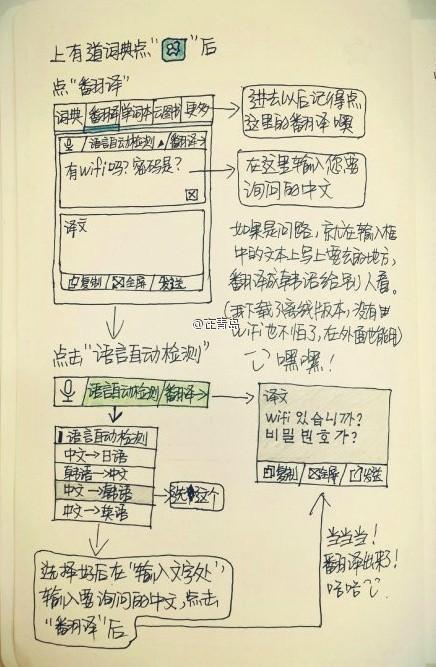 上有道词典点“”后
点“翻译”
词典 翻译 单词本 云图书 更多
进去以后记得点
这里的翻译噢
语言自动检测 翻译→
有wifi吗?密码是?
在这里输入你要
询问的中文
译文
复制 全屏 发送
如果是问路,就在输入框
中的文本上写上要去的地方,
翻译成韩语给别人看。
(要下载了离线版本,没有
wifi也不怕了,在外面也能用)
嘿嘿!
@在青岛
点击“语言自动检测”
语言自动检测 翻译→
译文
wifi 있습니까?
비밀번호가?
复制 全屏 发送
语言自动检测
中文→日语
韩语→中文
中文→韩语
选这个
中文→英语
选择好后在“输入文字处”
输入要询问的中文,点击
“翻译”后
当当当!
翻译出来了!
哈哈